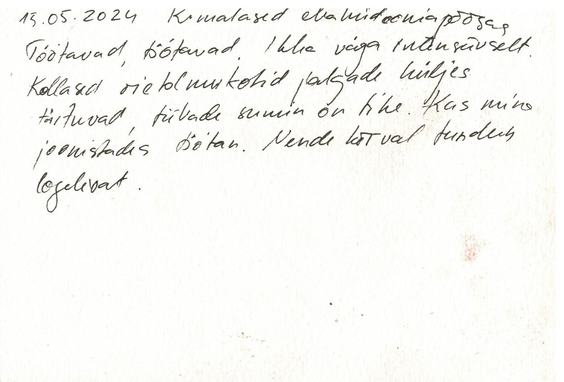 13.05.2024 Kimalased ebaküdooniapõõsas
Töötavad, töötavad. Ikka väga intensiivselt.
Kollased õietolmukotid jalgade küljes
täituvad, tiibade sumin on tihe. Kas mina
joonistades töötan. Nende kõrval tundun
logelevat.